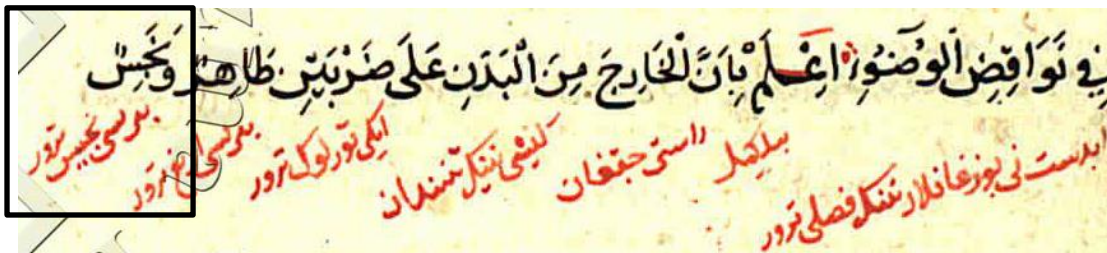 فِي نَوَاقِضِ الْوُضُوءِ اِعْلَمْ بِاَنَّ الْخَارِجَ مِنَ الْبَدَنِ عَلَى ضَرْبَيْنِ طَاهِرٌ وَنَجِسٌ
ابدست نی بوزغانلار ننک فصلی ترور
بیلکیل
راستی جقغان
کیشی ننیک تنندان
ایکی تورلوک ترور
بیرسی ترور
بیرسی نجس ترور